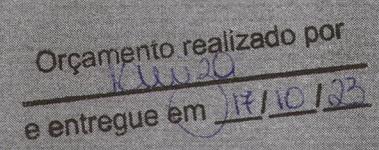 Orçamento realizado por
e entregue em 17/10/23